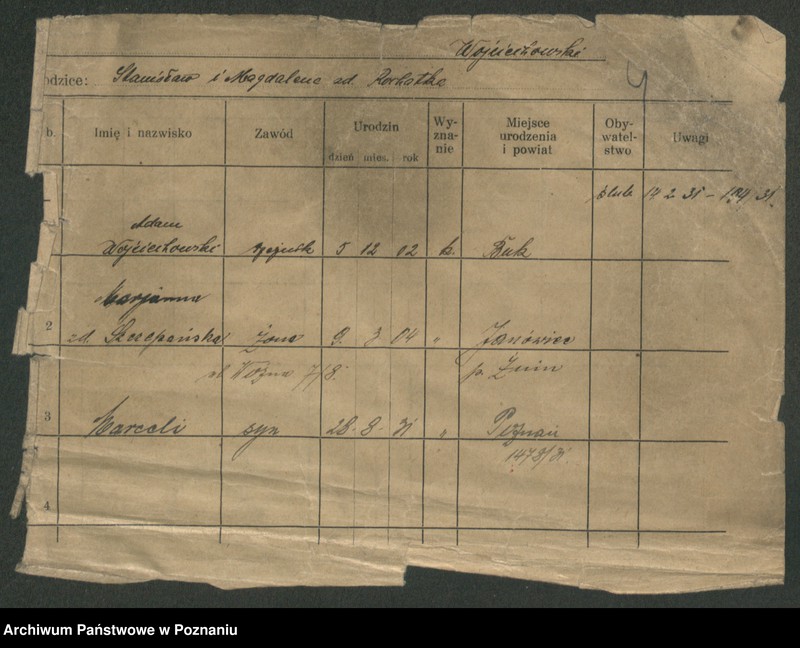 Wojciechowski
odzice: Stanisław i Magdalena zd.
b. Imię i nazwisko Zawód Urodzin dzień mies. rok Wy-zna-nie Miejsce urodzenia i powiat Oby-watel-stwo Uwagi
ślub 14 2 31 –
Adam
Wojciechowski 5 12 02 k. Buk
Marjanna
2 zd. Szczepańska żona 9. 3 04 " Janówiec
ul Woźna 7/8. p. Żnin
3 Marceli syn 28 8 31 " Poznań
1478/31.
4
Archiwum Państwowe w Poznaniu